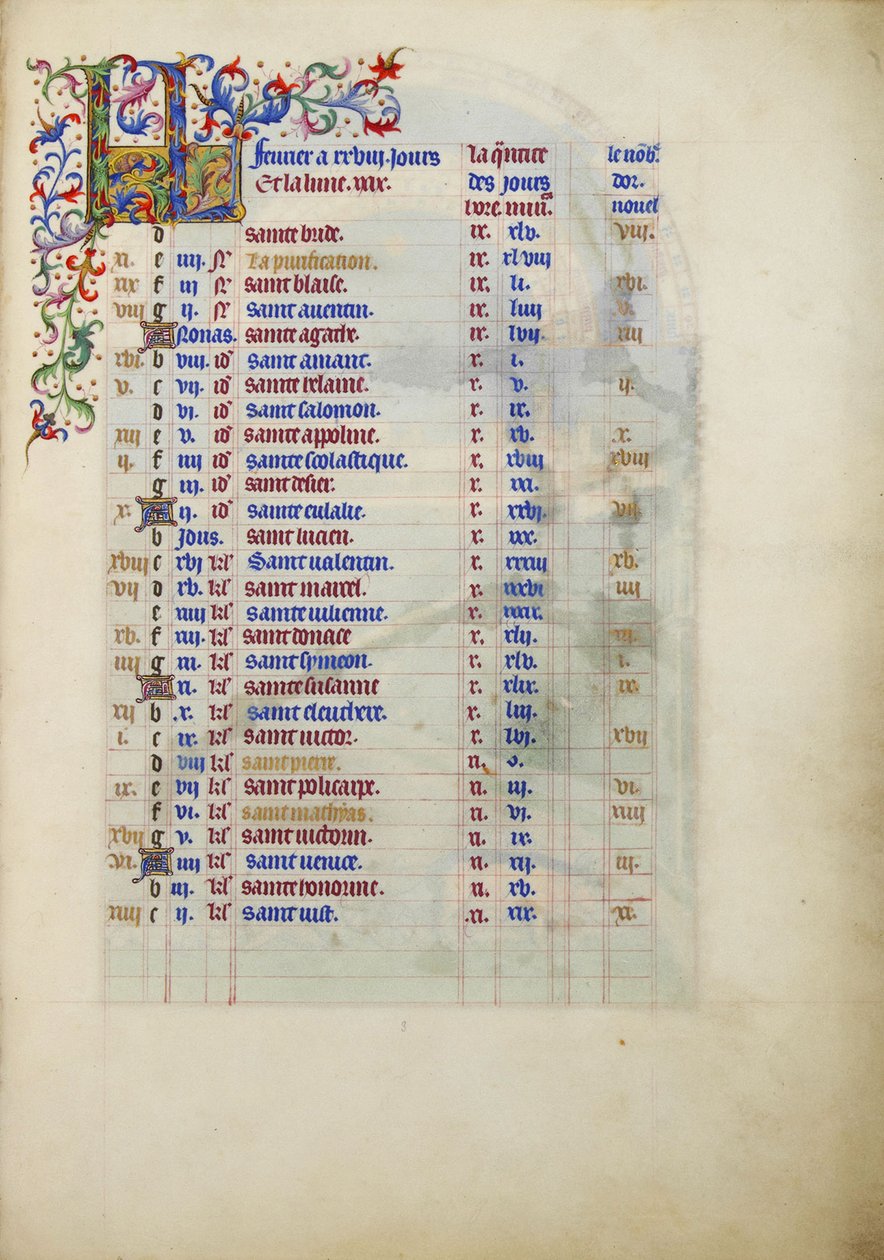 feurier a xxviij. jours la q̃ntite le nõb.
Et la lune. xxix. des jours dor.
hore. minu. nouel
d sainte bride. ix. xlv. viij.
xi. e iiij. N la purification. ix. xlviij
xix f iij N saint blaise. ix. li. xvi.
viij g ij. N saint auentin. ix. liiij v.
A Nonas. sainte agathe. ix. lvij. xiij
xvi. b viii. id saint amant. x. i.
v. c vij. id sainte helaine. x. v. ij.
d vi. id saint salomon. x. ix.
xiij e v. id sainte appoline. x. xv. x.
ij. f iiij id sainte scolastique. x. xviij xviij
g iij. id saint desier. x. xxi.
x. A ij. id sainte eulalie. x. xxvi. vij.
b jdus. saint lucien. x. xxx.
xviij c xvj kl Saint ualentin. x. xxxiij xv.
vij d xv. kl saint marcel. x. xxxvi iiij
e xiiij kl sainte iulienne. x. xxxix.
xv. f xiij. kl saint donace x. xlij. xij.
iiij g xii. kl saint symeon. x. xlv. i.
A xi. kl sainte susanne x. xlix. ix.
xij b .x. kl saint eleuthere. x. liij.
i. c ix. kl saint uictor. x. lvj. xvij
d viij kl saint pierre. xi. o.
ix. e vij kl saint policarpe. xi. iij. vi.
f vi. kl saint mathyas. xi. vi. xiiij
xvij g v. kl saint uictorin. xi. ix.
vi. A iiij kl saint uenice. xi. xij. iij.
b iij. kl sainte honorine. xi. xv.
xiiij c ij. kl saint iust. .xi. xix. xx.